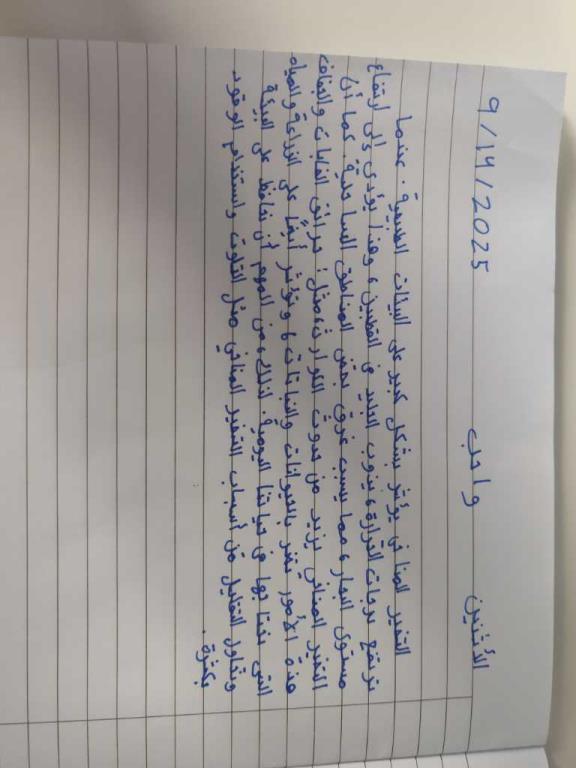 الأثنين واجب 9/14/2025
التغير المناخي يؤثر بشكل كبير على البيئات الطبيعية. عندما
ترتفع درجات الحرارة، يذوب الجليد في القطبين، وهذا يؤدي إلى ارتفاع
مستوى البحار، مما يسبب غرق بعض المناطق الساحلية. كما أن
التغير المناخي يزيد من حدوث الكوارث، مثل: حرائق الغابات والجفاف
هذه الأمور تضر بالحيوانات والنباتات، وتؤثر أيضًا على الزراعة والمياه
التي نحتاجها في حياتنا اليومية. لذلك، من المهم أن نحافظ على البيئة
ونحاول التقليل من أسباب التغير المناخي مثل التلوث واستخدام الوقود
بكثرة.